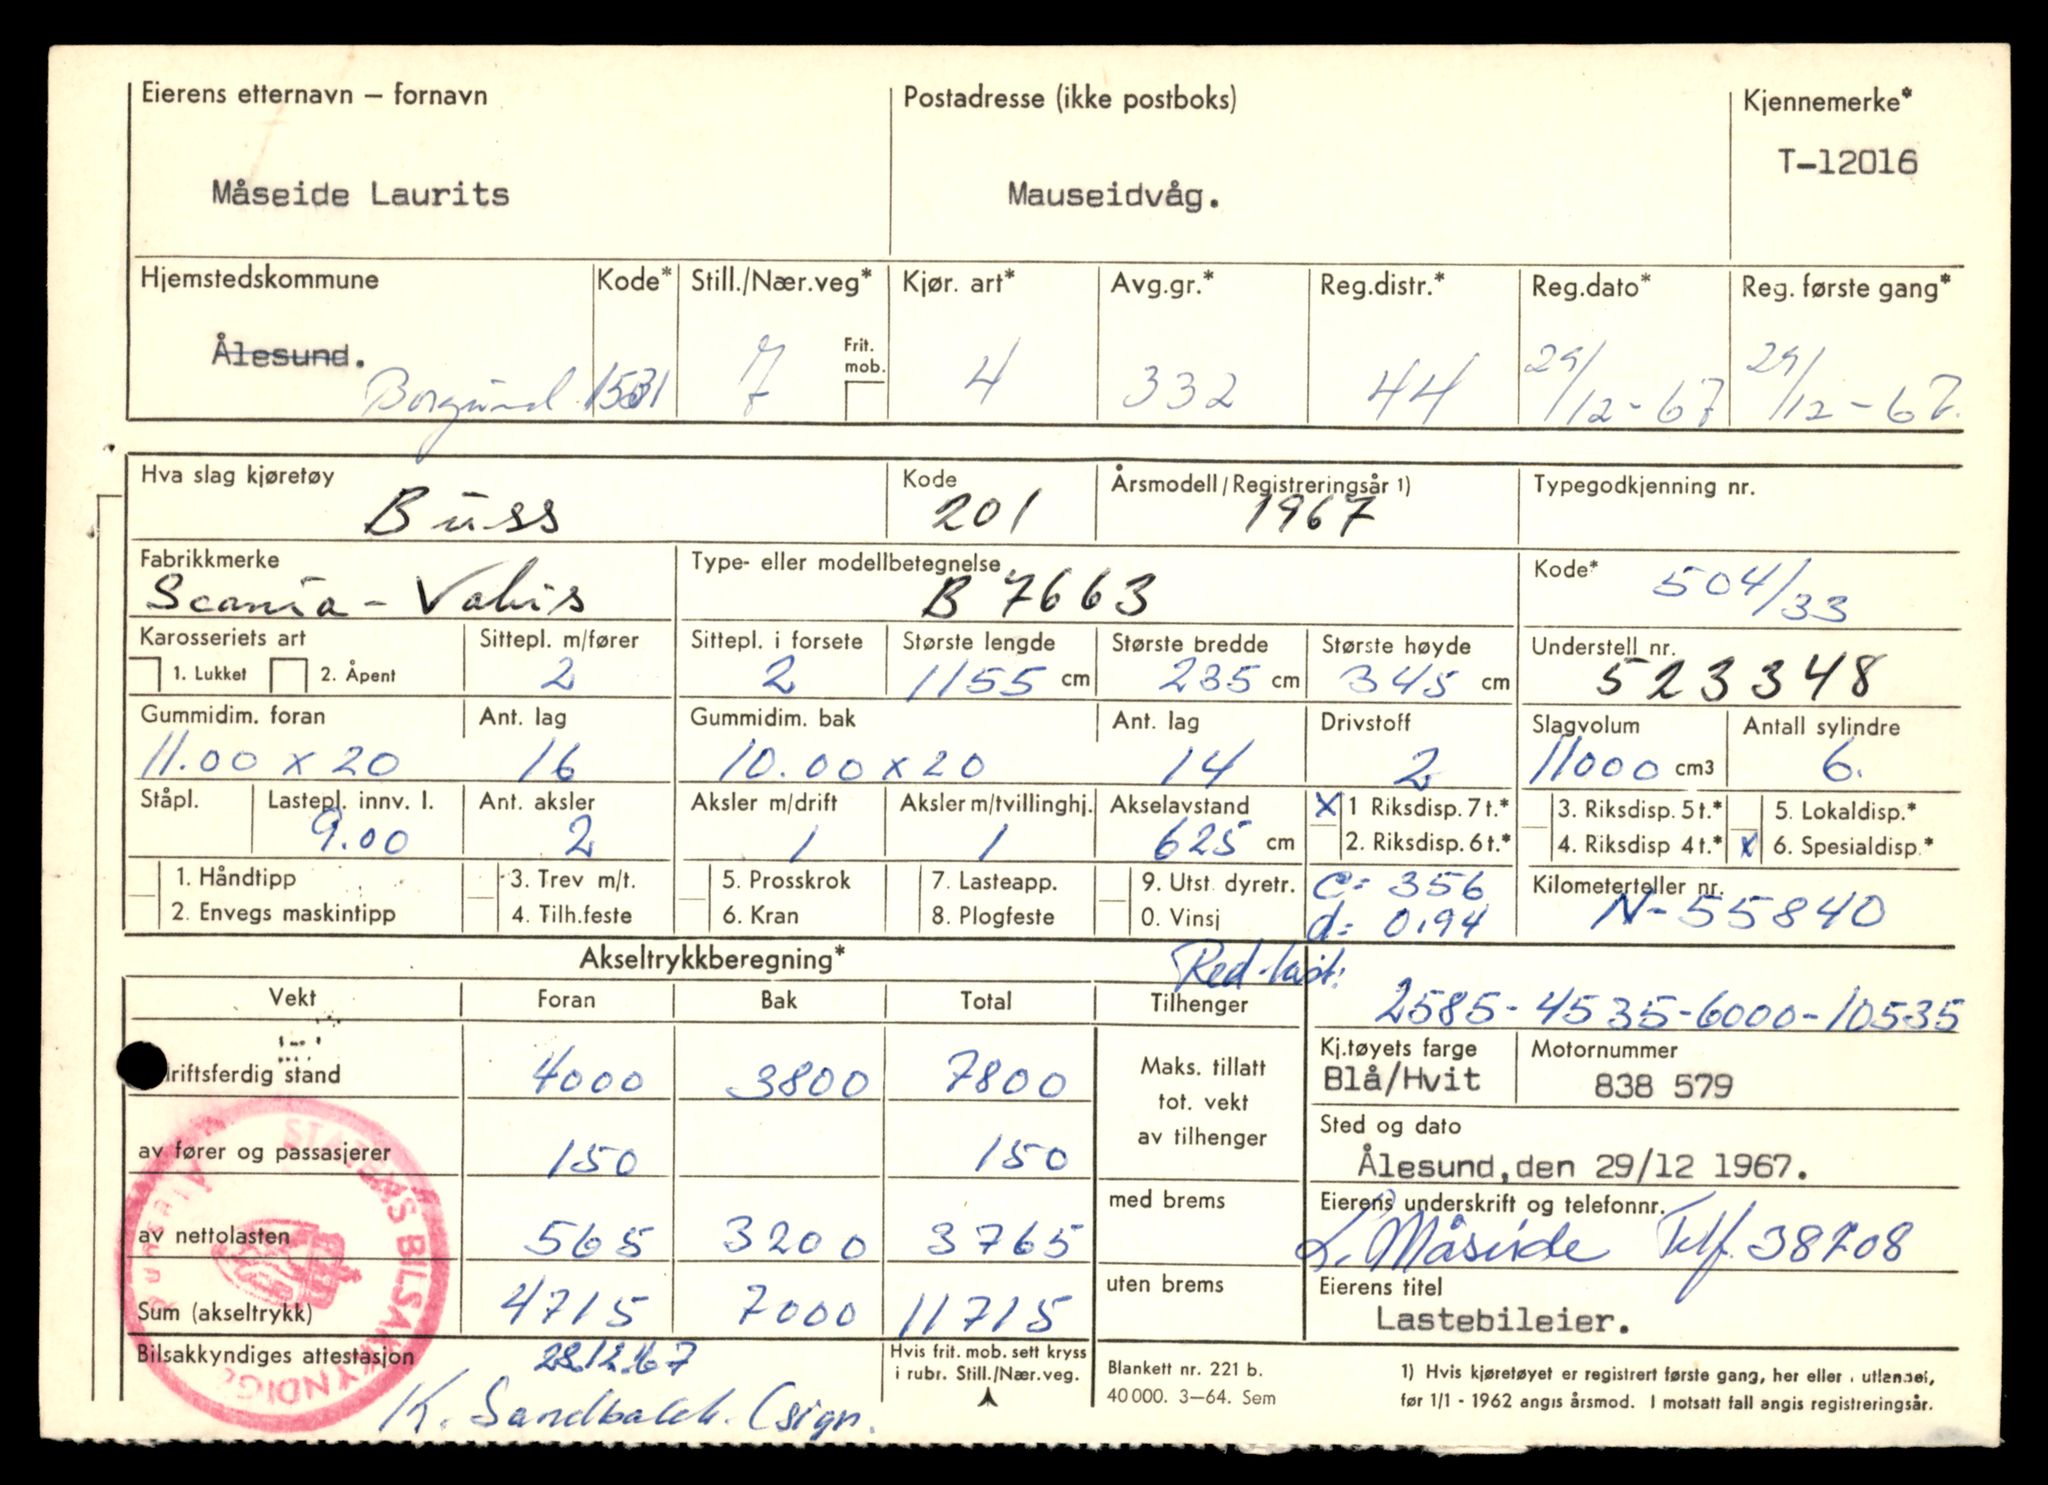 Eierens etternavn – fornavn Postadresse (ikke postboks) Kjennemerke*
Måseide Laurits Mauseidvåg. T-12016
Hjemstedskommune Kode* Still./Nær.veg* Kjør. art* Avg.gr.* Reg.distr.* Reg.dato* Reg. første gang*
Ålesund. Frit. mob.
Borgund 1531 7 4 332 44 29/12-67 29/12-67.
Hva slag kjøretøy Kode Årsmodell/Registreringsår 1) Typegodkjenning nr.
Buss 201 1967
Fabrikkmerke Type- eller modellbetegnelse Kode*
Scania-Vabis B 7663 504/33
Karosseriets art Sittepl. m/fører Sittepl. i forsete Største lengde Største bredde Største høyde Understell nr.
1. Lukket 2. Åpent 2 2 1155 cm 235 cm 345 cm 523348
Gummidim. foran Ant. lag Gummidim. bak Ant. lag Drivstoff Slagvolum Antall sylindre
11.00 x 20 16 10.00 x 20 14 2 11000 cm3 6.
Ståpl. Lastepl. innv. l. Ant. aksler Aksler m/drift Aksler m/tvillinghj. Akselavstand x 1 Riksdisp. 7 t.* 3. Riksdisp. 5 t.* 5. Lokaldisp.*
9.00 2 1 1 625 cm 2. Riksdisp. 6 t.* 4. Riksdisp 4 t.* x 6. Spesialdisp.*
1. Håndtipp 3. Trev m/t. 5. Prosskrok 7. Lasteapp. 9. Utst. dyretr. c= 356 Kilometerteller nr.
2. Envegs maskintipp 4. Tilh.feste 6. Kran 8. Plogfeste 0. Vinsj d= 0,94 N-55840
Akseltrykkberegning* Red. last:
Vekt Foran Bak Total Tilhenger 2585-4535-6000-10535
driftsferdig stand 4000 3800 7800 Maks. tillatt tot. vekt av tilhenger
Kj.tøyets farge Motornummer
Blå/Hvit 838 579
av fører og passasjerer 150 150
Sted og dato
Ålesund,den 29/12 1967.
av nettolasten 565 3200 3765 med brems
Eierens underskrift og telefonnr.
L. Måseide Telf. 38208
Sum (akseltrykk) 4715 7000 11715 uten brems
Eierens titel
Lastebileier.
STATENS BILSAKKYNDIGE Ålesund
Bilsakkyndiges attestasjon 28.12.67
K. Sandbakk (sign.
Hvis frit. mob. sett kryss
i rubr. Still./Nær.veg.
Blankett nr. 221 b.
40 000. 3–64. Sem
1) Hvis kjøretøyet er registrert første gang, her eller i utlandet,
før 1/1 - 1962 angis årsmod. I motsatt fall angis registreringsår.